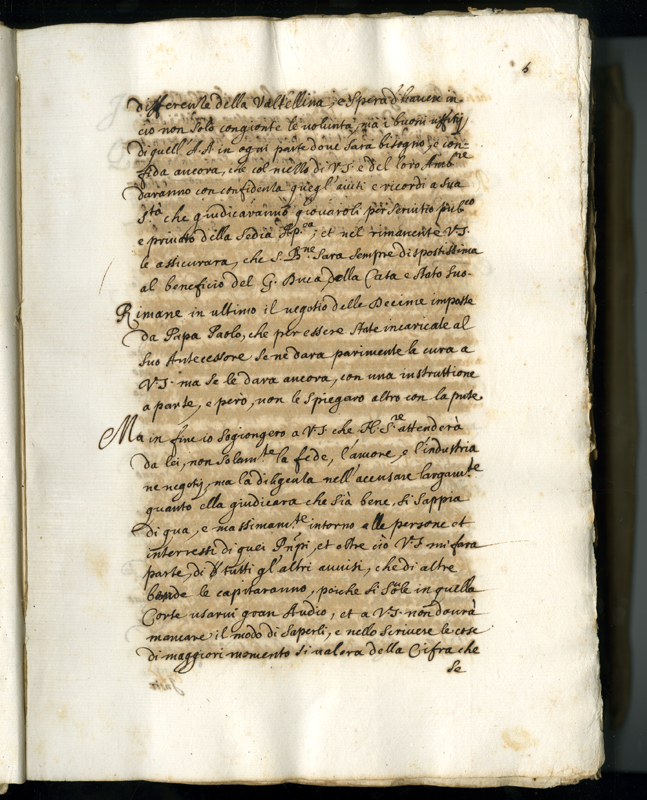 6
differenze della Valtellina, e Spera d'haver in
ciò non solo congionte le voluntà, ma i buoni uffitij
di quell'A.A. in ogni parte dove sarà bisogno, e con-
fida ancora, che col mezzo di V.S. e del loro Amb.re
daranno con confidenza quegl'aiuti e ricordi a Sua
S.tà che giudicaranno giovaroli per servitio pub.co
e privato della Sedia Ap.ca; et nel rimanente V.S.
le assicurarà, che S. B.ne Sara sempre dispostissima
al beneficio del G. Duca della Casa e Stato Suo-
Rimane in ultimo il negotio delle Decime imposte
da Papa Paolo, che per essere State incaricate al
suo Antecessore se ne dara parimente la cura a
V.S. ma se le dara ancora, con una instruttione
a parte, e però, non le spiegaro altro con la pnte
Ma in fine io sogiongero a V.S. che N. S.re attenderà
da lei, non solam.te la fede, l'amore, e l'industria
ne negotij, ma la diligenza nell'accusare largam.te
quanto ella giudicara che sia bene, si sappia
di qua, e massimam.te intorno alle persone et
interessi di quei Pnpi, et oltre ciò V.S. mi fara
parte, di tutti gl'altri avvisi, che di altre
bande le capitaranno, poiche si sole in quella
Corte usarvi gran studio, et a V.S. non dovrà
mancare il modo di saperli, e nello scrivere le cose
di maggiori momento si valera della Cifra che
se